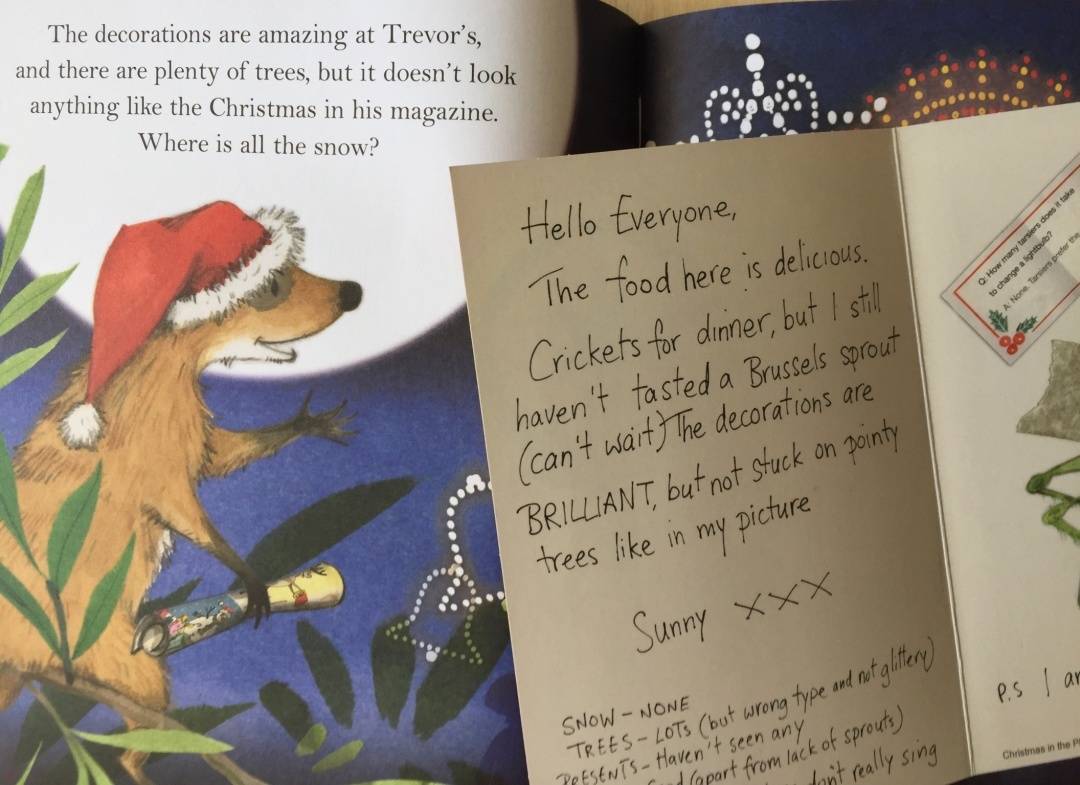 The decorations are amazing at Trevor's,
and there are plenty of trees, but it doesn't look
anything like the Christmas in his magazine.
Where is all the snow?
Hello Everyone,
The food here is delicious.
Crickets for dinner, but I still
haven't tasted a Brussels sprout
(can't wait) The decorations are
BRILLIANT, but not stuck on pointy
trees like in my picture
Sunny xxx
SNOW - NONE
TREES - LOTS (but wrong type and not glittery)
PRESENTS - Haven't seen any
(apart from lack of sprouts)
don't really sing
Q: How many tarsiers does it take
to change a lightbulb?
A: None. Tarsiers prefer the
P.S I
Christmas in the